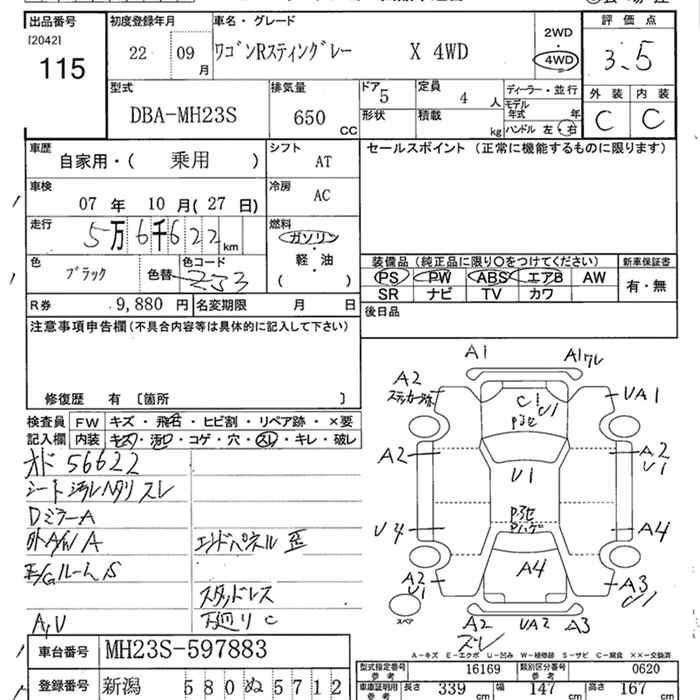 出品番号 初度登録年月 車名・グレード 評価点
[2042]
115 22 09月 ワゴンRスティングレー X 4WD 2WD 4WD 3.5
型式 排気量 ドア 5 定員 4人 ディーラー・並行 外装 内装
DBA-MH23S 650 CC 形状 積載 kg モデル年式 年 ハンドル 左・右 C C
車歴 自家用・( 乗用 ) シフト AT セールスポイント (正常に機能するものに限ります)
車検 07年 10月(27日) 冷房 AC
走行 5万6千622km 燃料 ガソリン・軽・油 ( )
装備品(純正品に限り○をつけてください) 新車保証書
色 ブラック 色替 色コード PS PW ABS エアB AW 有・無
SR ナビ TV カワ
R券 9,880円 名変期限 月 日 後日品
注意事項申告欄(不具合内容等は具体的に記入して下さい)
修復歴 有 [箇所 ]
検査員記入欄 FW キズ・飛石・ヒビ割・リペア跡・×要
内装 キズ・汚れ・コゲ・穴・スレ・キレ・破レ
オド 56622
シート汚レ ヘタリ スレ
DミラーA
外A/W A エンドパネル 歪
E/Gルーム S
スタッドレス
A,U 下廻り C
A1 A1ワレ
A2 C1 U1 UA1
A2 U1 A2 U1
U4 A4
A2 U1 A4 A3 C1
スペア A2 ズレ UA2 A3
A-キズ E-エクボ U-凹み W-補修跡 S-サビ C-腐食 XX-交換済
車台番号 MH23S-597883 型式指定番号 参考 16169 類別区分番号 参考 0620
登録番号 新潟 580 ぬ 5712 車庫証明用 参考 長さ 339cm 幅 147cm 高さ 167cm